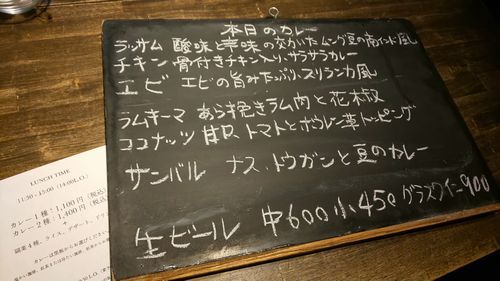 本日のカレー
ラッサム 酸味と辛味の ムング豆の南インド風
チキン 骨付きチキン入り、サラサラカレー
エビ エビの旨みたっぷり、スリランカ風
ラムキーマ あらす挽きラム肉と花椒
ココナッツ 甘口、トマトとホウレン草トッピング
サンバル ナス、トウガンと豆のカレー
生ビール 中600 小450 グラスワイン900
LUNCH TIME
11:30 - 15:00 (14:00L.O.)
カレー1種:1,100円(税込)
カレー2種:1,400円(税込)
副菜4種、ライス、デザート、
カレーは黒板からお選びください